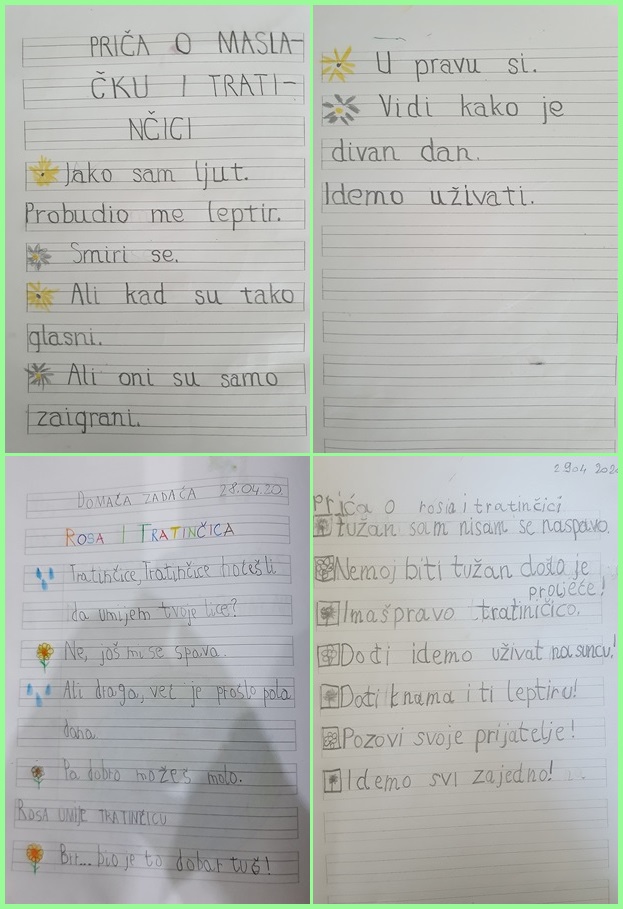 PRIČA O MASLA-
ČKU I TRATI-
NČICI
Jako sam ljut.
Probudio me leptir.
Smiri se.
Ali kad su tako
glasni.
Ali oni su samo
zaigrani.
U pravu si.
Vidi kako je
divan dan.
Idemo uživati.
DOMAĆA ZADAĆA 28.04.20.
ROSA I TRATINČICA
Tratinčice, Tratinčice hoćeš li
da umijem tvoje lice?
Ne, još mi se spava.
Ali draga, već je prošlo pola
dana.
Pa dobro možeš malo.
ROSA UMIJE TRATINČICU
Brr... bio je to dobar tuš!
29.04.2020
Prića o rosia i tratinčici
tužan sam nisam se naspavo.
Nemoj biti tužan došlo je
proljeće!
Imaš pravo tratinčico.
Dođi idemo uživat na suncu!
Dođi k nama i ti leptiru!
Pozovi svoje prijatelje!
Idemo svi zajedno!